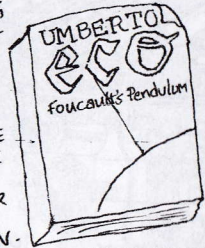 UMBERTO
eco
Foucault's Pendulum